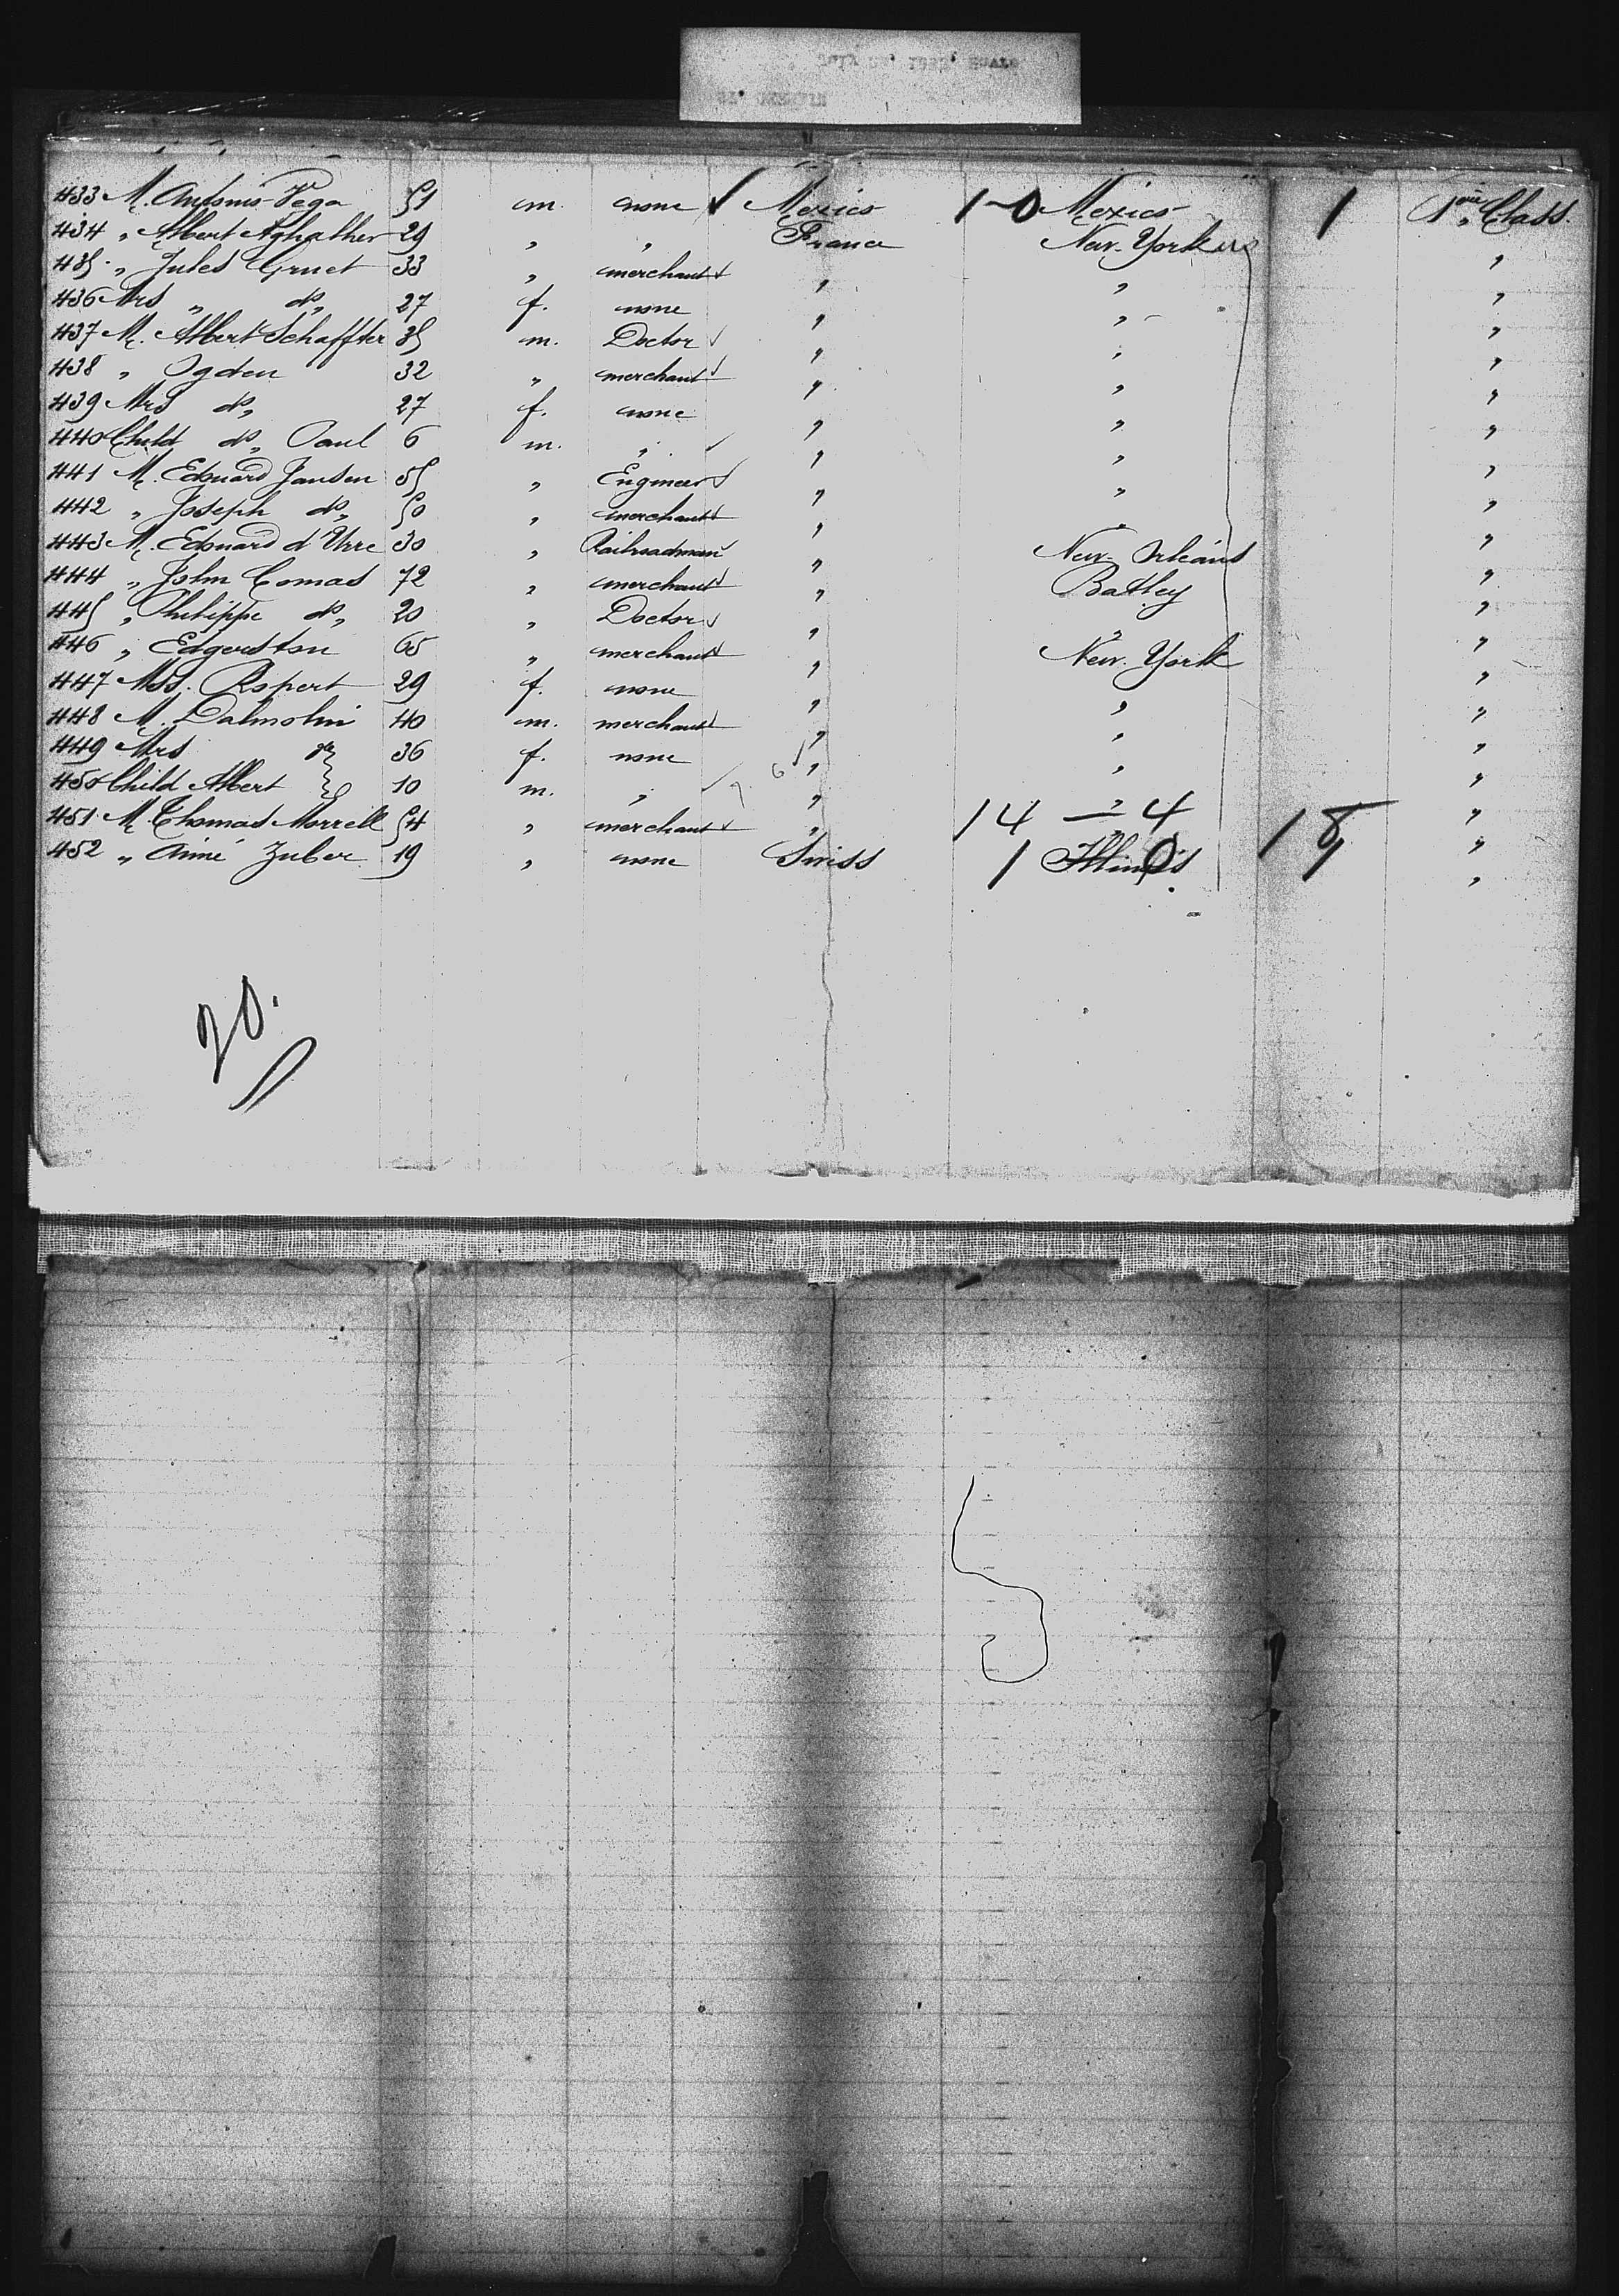 433 M. Antonio Vega 51 m. none Mexico 1-0 Mexico 1 1ère Class.
434 " Albert Aghalher 29 " " France New-York "
435 " Jules Gruet 33 " merchant " " "
436 Mrs " do 27 f. none " " "
437 M. Albert Schaffter 35 m. Doctor " " "
438 " Ogden 32 " merchant " " "
439 Mrs do 27 f. none " " "
440 Child do Paul 6 m. " " " "
441 M. Edouard Jansen 55 " Engineer " " "
442 " Joseph do 50 " merchant " " "
443 M. Edouard d'Urre 30 " Railroadman " New-Orléans "
444 " John Comas 72 " merchant " Batley "
445 " Philippe do 20 " Doctor " " "
446 " Edgerston 65 " merchant " New-York "
447 Mss. Ropert 29 f. none " " "
448 M. Dalmolin 40 m. merchant " " "
449 Mrs do 36 f. none " " "
450 Child Albert 10 m. " " " "
451 M. Thomas Morrell 54 " merchant " 14 — 4 "
452 " Aimé Zuber 19 " none Swiss 1 Illinois 18 "
20.